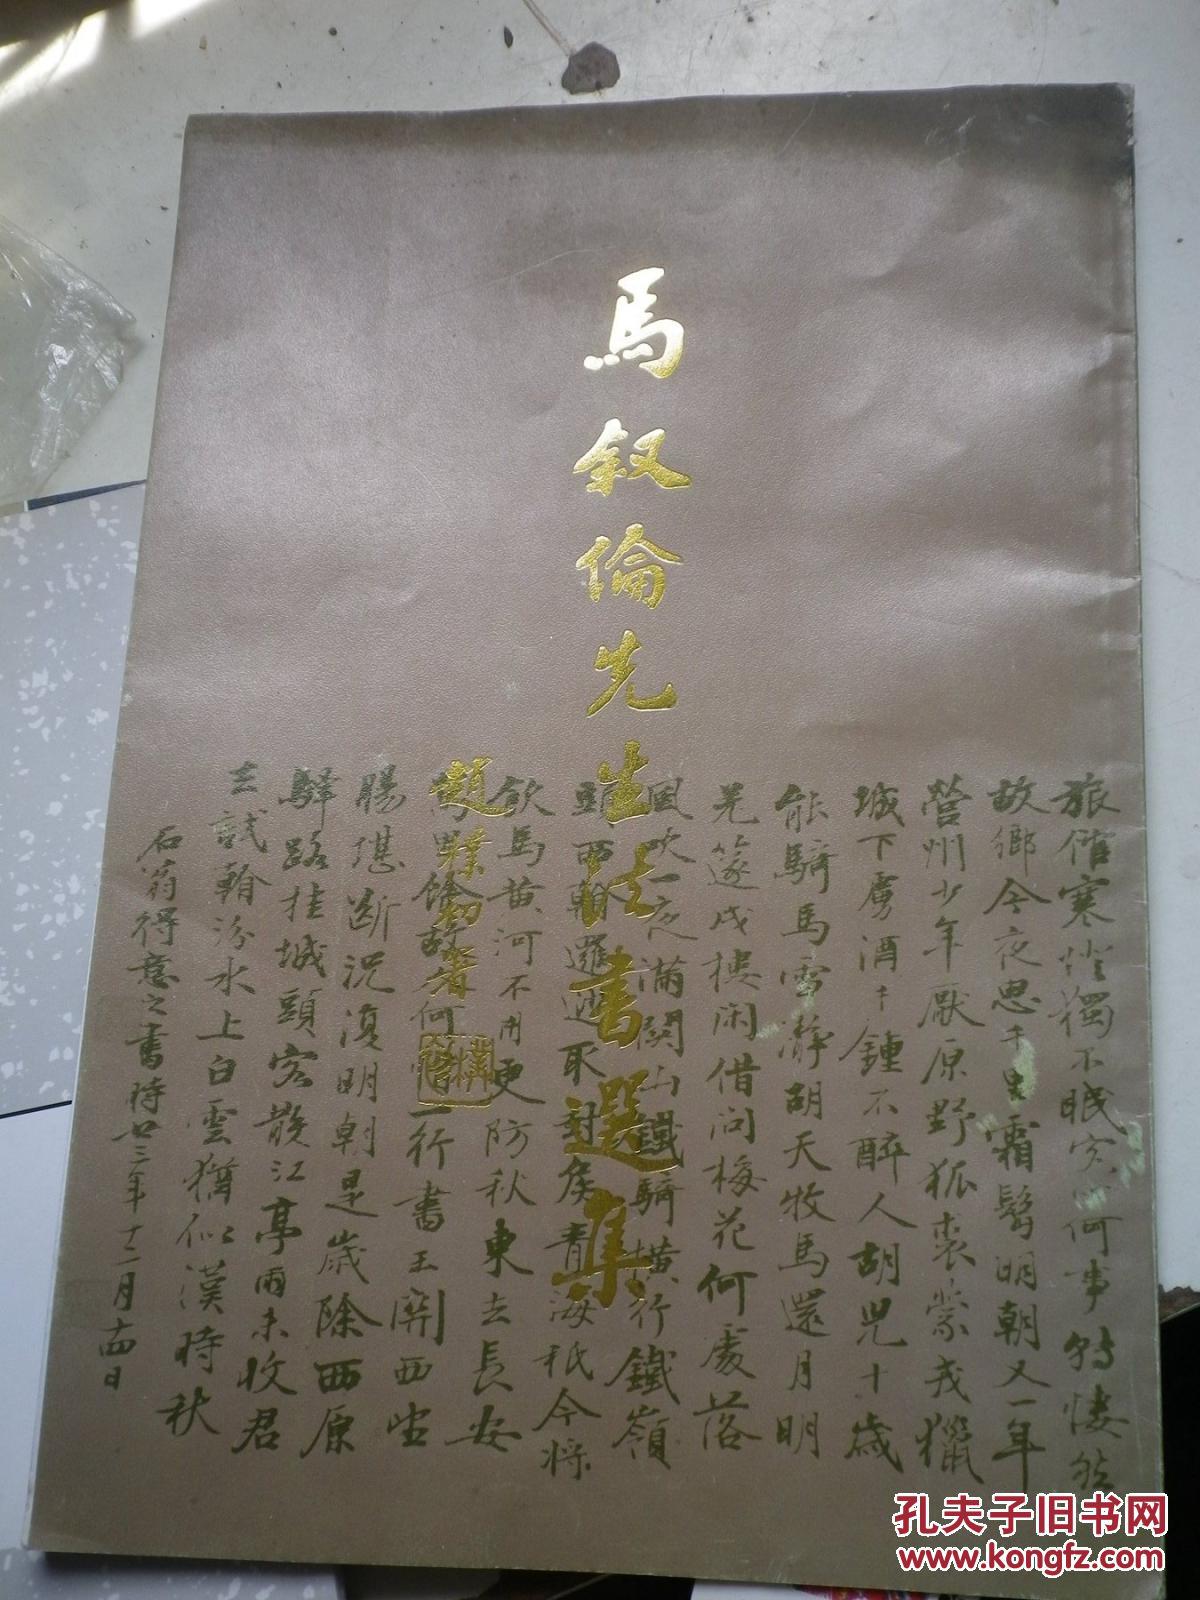 馬叙倫先生法書選集
趙樸初署
旅館寒燈獨不眠客心何事轉悽然
故鄉今夜思千里霜鬢明朝又一年
營州少年厭原野狐裘蒙戎獵
城下虜酒千鍾不醉人胡兒十歲
能騎馬雪淨胡天牧馬還月明
羌篴戍樓閑借問梅花何處落
風吹一夜滿關山鐵騎橫行鐵嶺
頭西看邏逤取封侯青海秖今將
飲馬黃河不用更防秋東去長安
萬里餘故人何惜一行書玉關西望
腸堪斷況復明朝是歲除西原
驛路挂城頭客散江亭雨未收君
去試看汾水上白雲猶似漢時秋
石翁得意之書時廿三年十二月十四日
孔夫子旧书网
www.kongfz.com